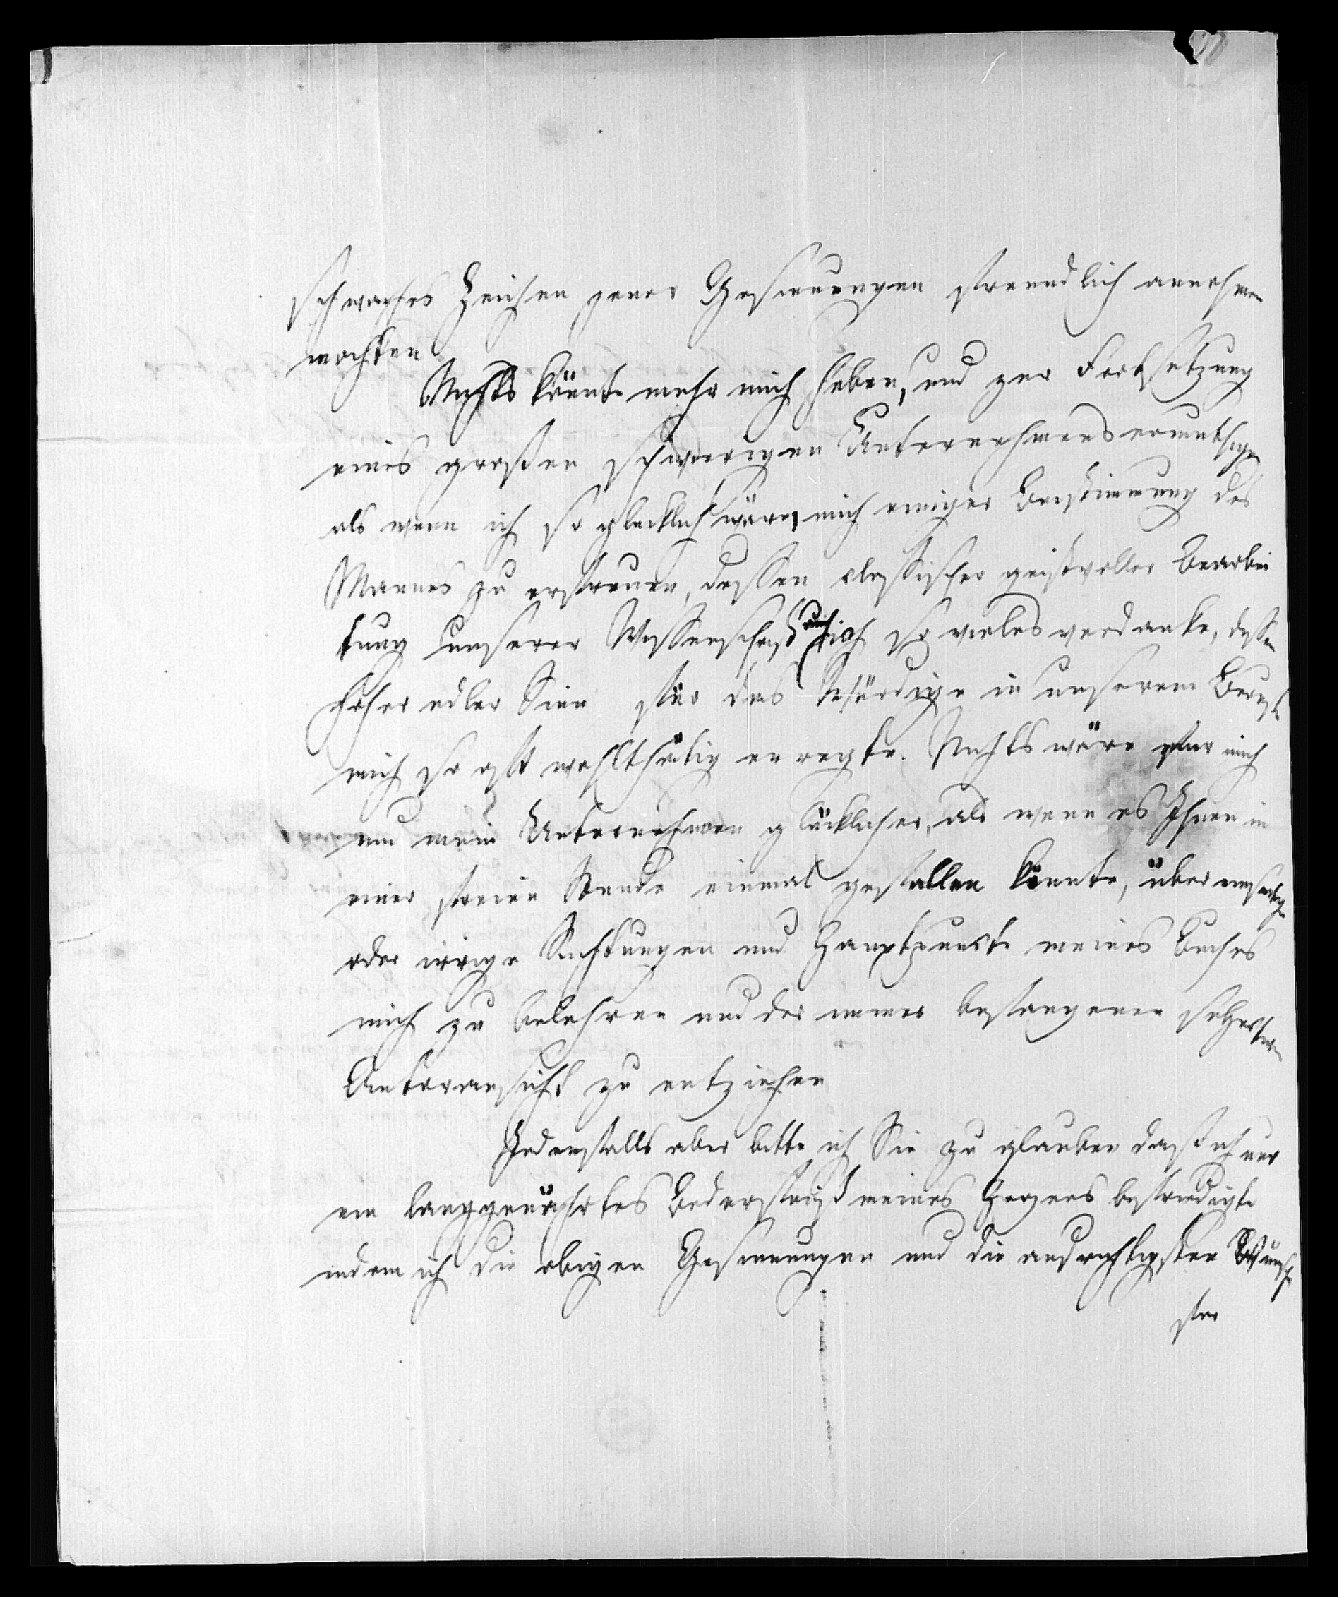 schwaches Zeichen jener Gesinnungen freundlich annehmen
mochten
Nichts könnte mehr mich heben, und zur Fortsetzung
eines großen schwierigen Unternehmens ermuthigen
als wenn ich so glücklich wäre, mich einiger Beistimmung des
Mannes zu erfreuen, dessen classischer geistvoller Bearbei
tung unserer Wissenschaft auch ich so vieles verdanke, dessen
hoher edler Sinn für das Würdige in unserem Berufe
mich so oft wohlthätig erregte. Nichts wäre für mich
und mein Unternehmen glücklicher, als wenn es Ihnen in
einer freien Stunde einmal gefallen könnte, über
oder irrige Richtungen und Hauptpunkte meines Buches
mich zu belehren und der immer befangenen
Autoransicht zu entziehen
Jedenfalls aber bitte ich Sie zu glauben daß ich nur
ein langgenährtes Bedürfniß meines Herzens befriedigte
indem ich die obigen Gesinnungen und die aufrichtigsten Wünsche
für